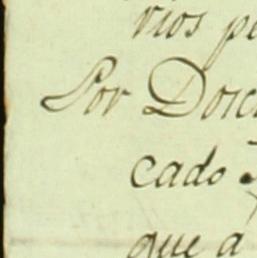 rios pe
Por Dosc
cado
que a